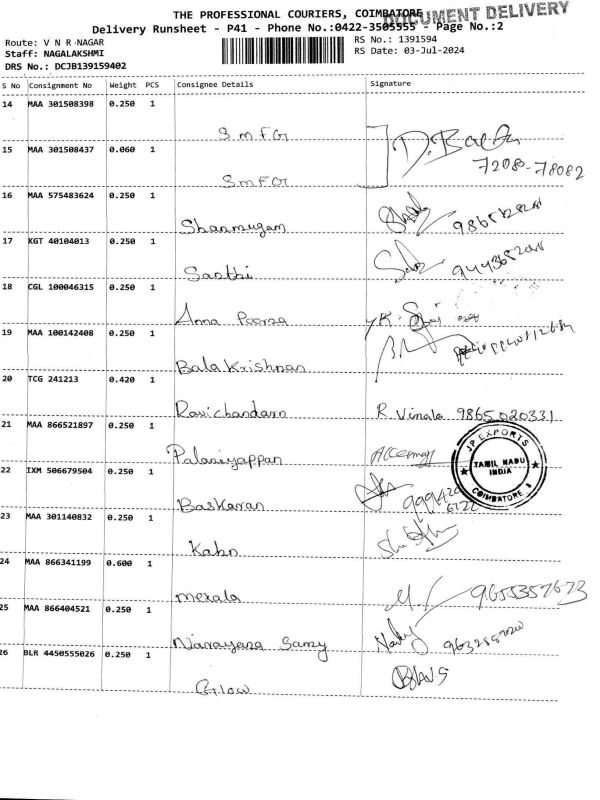 THE PROFESSIONAL COURIERS, COIMBATORE
DOCUMENT DELIVERY
Delivery Runsheet - P41 - Phone No.:0422-3505555 - Page No.:2
Route: V N R NAGAR
RS No.: 1391594
Staff: NAGALAKSHMI
RS Date: 03-Jul-2024
DRS No.: DCJB139159402
S No Consignment No Weight PCS Consignee Details Signature
14 MAA 301508398 0.250 1
SMFG
15 MAA 301508437 0.060 1
72080-78082
SMFG
16 MAA 575483624 0.250 1
Shanmugam
17 KGT 40104013 0.250 1
Sakthi
18 CGL 100046315 0.250 1
Anna Poorna
19 MAA 100142408 0.250 1
Bala Krishnan
20 TCG 241213 0.420 1
Ravichandarn R Vinala 9865020331
21 MAA 866521897 0.250 1
JP EXPORTS
TAMIL NADU
INDIA
COIMBATORE
Palaniyappan
22 IXM 506679504 0.250 1
Baskaran
23 MAA 301140832 0.250 1
Kabn
24 MAA 866341199 0.600 1
merala 9655357673
25 MAA 866404521 0.250 1
Narayana Samy
26 BLR 4450555026 0.250 1
Glow